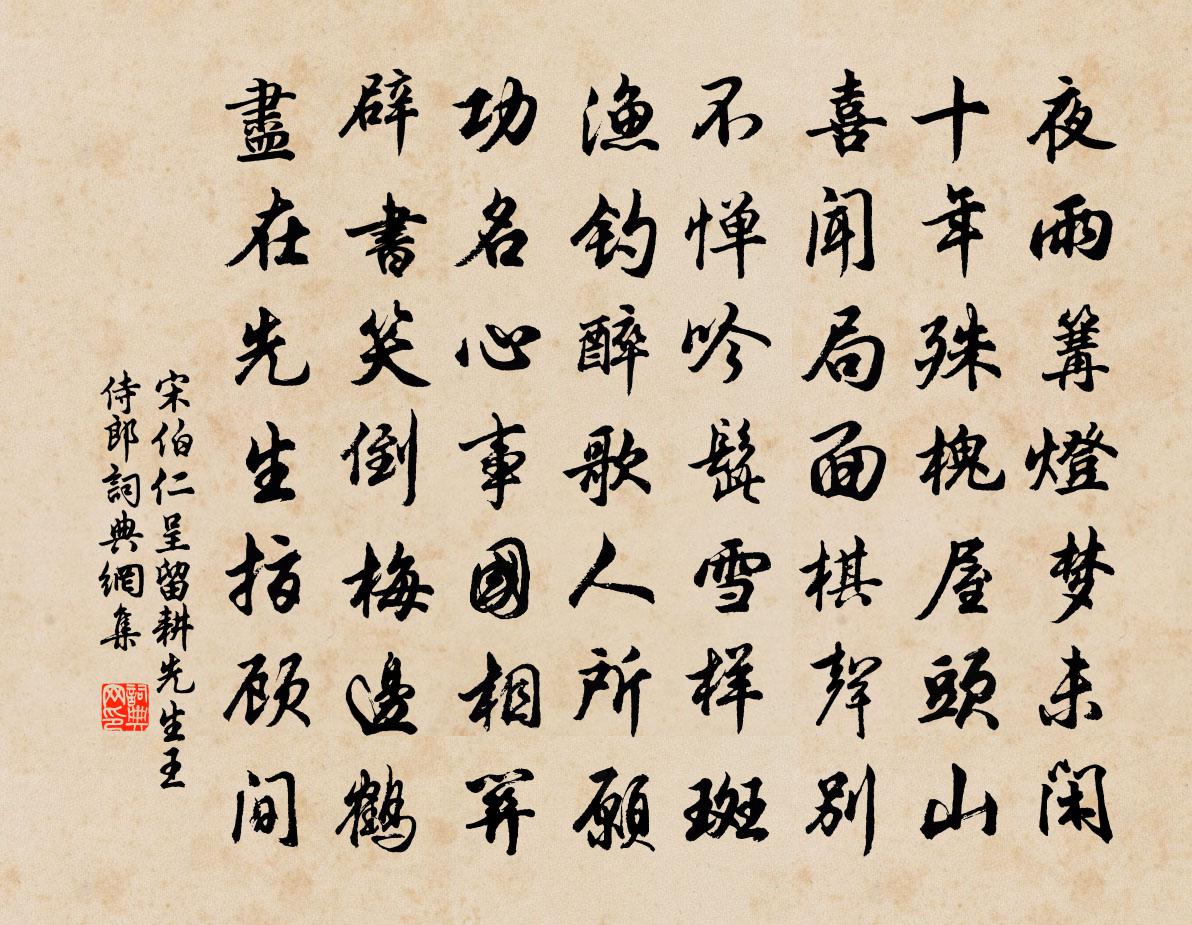 夜雨篝燈梦未闲
十年殊槐屋頭山
喜聞局面棋聲别
不惮吟髭雪样斑
渔钓醉歌人所願
功名心事國相關
辟書笑倒梅邊鶴
盡在先生指顾間
宋伯仁呈留耕先生王
侍郎詞典網集
詞典网印